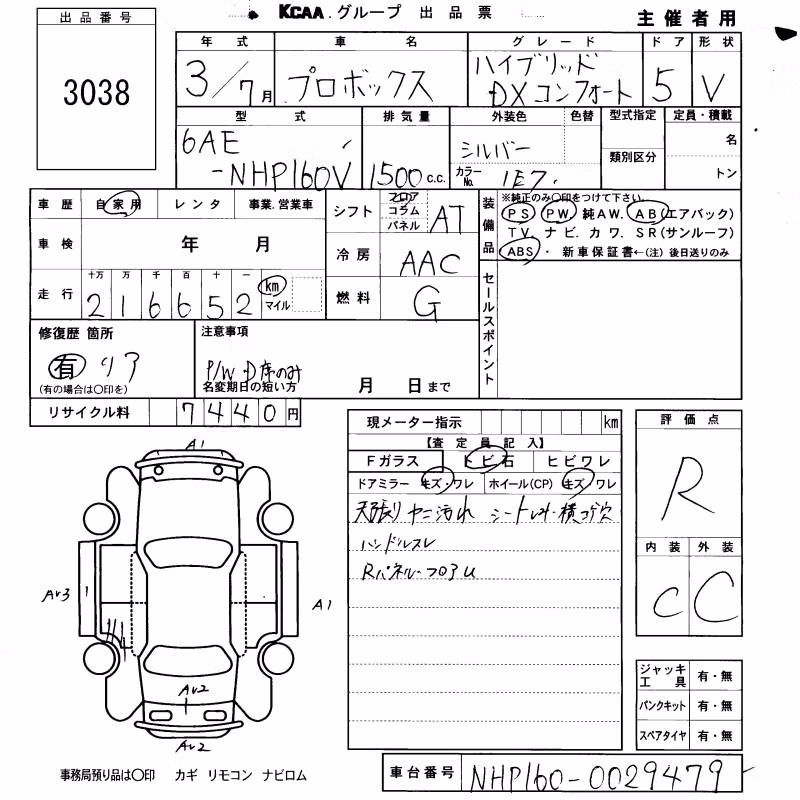 出品番号
3038
KCAA.グループ 出品票
主催者用
年式 車名 グレード ドア 形状
3/7月 プロボックス ハイブリッド DXコンフォート 5 V
型式 排気量 外装色 色替 型式指定 定員・積載
6AE-NHP160V 1500c.c. シルバー 類別区分 名
カラーNo. 1E7 トン
車歴 自家用 レンタ 事業.営業車
シフト フロア コラム パネル AT
装備品
※純正のみ〇印をつけて下さい。
PS PW 純AW. AB(エアバック)
TV. ナビ. カワ. SR(サンルーフ)
ABS・ 新車保証書←(注) 後日送りのみ
車検 年 月
冷房 AAC
走行 十万 万 千 百 十 一
216652 km マイル
燃料 G
セールスポイント
修復歴 箇所
有 リア
(有の場合は〇印を)
注意事項
P/W・D席のみ
名変期日の短い方 月 日まで
リサイクル料 7440円
現メーター指示 km
【査定員記入】
Fガラス トビ石 ヒビワレ
ドアミラー キズ・ワレ ホイール(CP) キズ/ワレ
天張りヤニ汚れ シート
ハンドルスレ
Rパネル・フロアU
評価点
R
内装 外装
C C
A1
AW3
1
A1
AW2
AW2
ジャッキ工具 有・無
パンクキット 有・無
スペアタイヤ 有・無
事務局預り品は〇印 カギ リモコン ナビロム
車台番号 NHP160-0029479